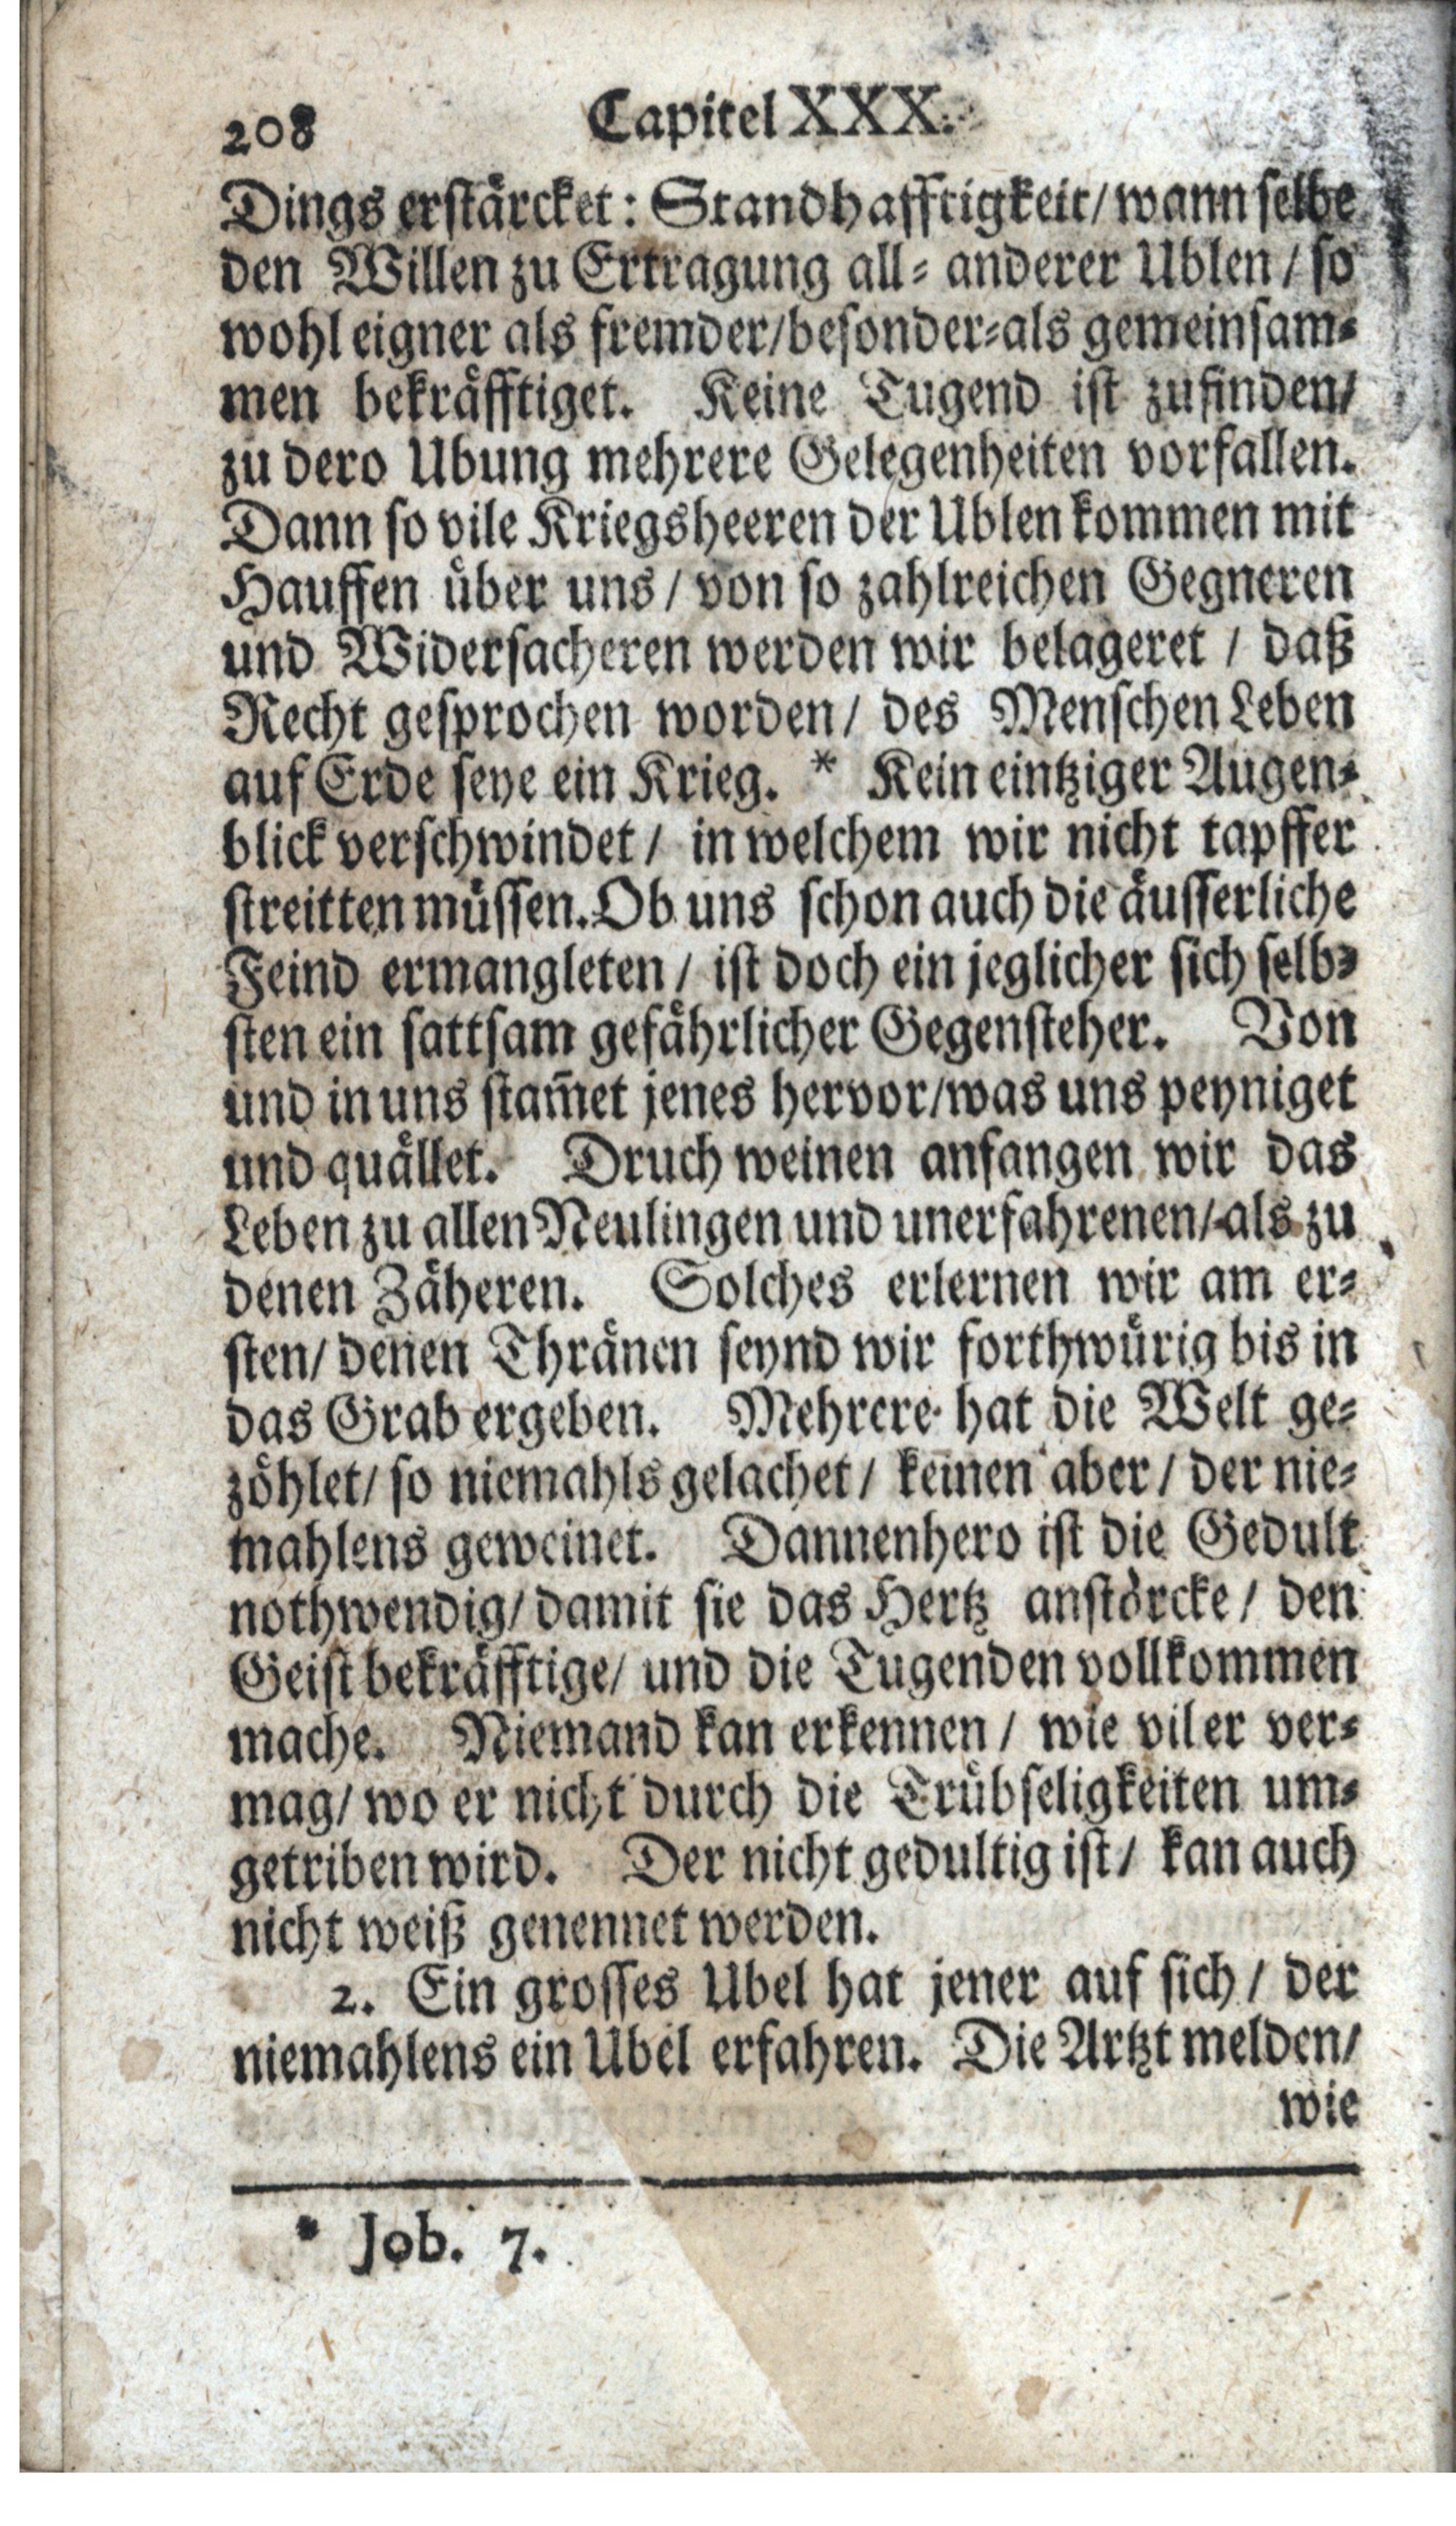 208 Capitel XXX.
Dings erstårcket: Standhafftigkeit/ wann selbe
den Willen zu Ertragung all⸗ anderer Ublen / so
wohl eigner als fremder/besonder⸗als gemeinsam⸗
men bekråfftiget. Keine Tugend ist zufinden/
zu dero Ubung mehrere Gelegenheiten vorfallen.
Dann so vile Kriegsheeren der Ublen kommen mit
Hauffen ůber uns / von so zahlreichen Gegneren
und Widersacheren werden wir belageret / daß
Recht gesprochen worden / des Menschen Leben
auf Erde seye ein Krieg. * Kein eintziger Augen⸗
blick verschwindet / in welchem wir nicht tapffer
streitten můssen. Ob uns schon auch die åusserliche
Feind ermangleten / ist doch ein jeglicher sich selb⸗
sten ein sattsam gefåhrlicher Gegensteher. Von
und in uns stam̃et jenes hervor/was uns peyniget
und quållet. Druch weinen anfangen wir das
Leben zu allen Neulingen und unerfahrenen/ als zu
denen Zåheren. Solches erlernen wir am er⸗
sten/ denen Thrånen seynd wir forthwůrig bis in
das Grab ergeben. Mehrere hat die Welt ge⸗
zöhlet/ so niemahls gelachet / keinen aber / der nie⸗
mahlens geweinet. Dannenhero ist die Gedult
nothwendig/ damit sie das Hertz anstörcke / den
Geist bekråfftige/ und die Tugenden vollkommen
mache. Niemand kan erkennen / wie vil er ver⸗
mag/ wo er nicht durch die Trůbseligkeiten um⸗
getriben wird. Der nicht gedultig ist / kan auch
nicht weiß genennet werden.
2. Ein grosses Ubel hat jener auf sich / der
niemahlens ein Ubel erfahren. Die Artzt melden/
wie
* Job. 7.